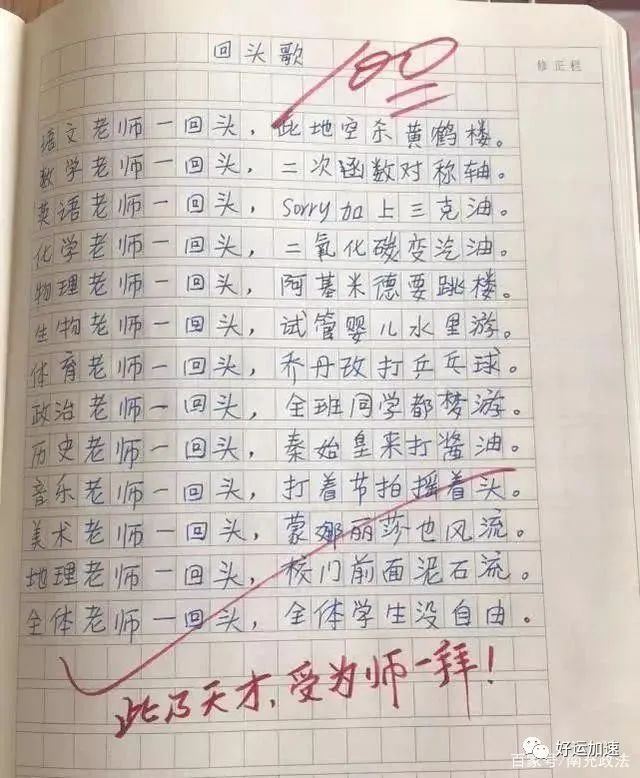 回头歌
100
修正栏
语文老师一回头，此地空杀黄鹤楼。
数学老师一回头，二次函数对称轴。
英语老师一回头，Sorry加上三克油。
化学老师一回头，二氧化碳变汽油。
物理老师一回头，阿基米德要跳楼。
生物老师一回头，试管婴儿水里游。
体育老师一回头，乔丹改打乒乓球。
政治老师一回头，全班同学都梦游。
历史老师一回头，秦始皇来打酱油。
音乐老师一回头，打着节拍摇着头。
美术老师一回头，蒙娜丽莎也风流。
地理老师一回头，校门前面泥石流。
全体老师一回头，全体学生没自由。
此乃天才，受为师一拜！
好运加速
百家号/南充政法